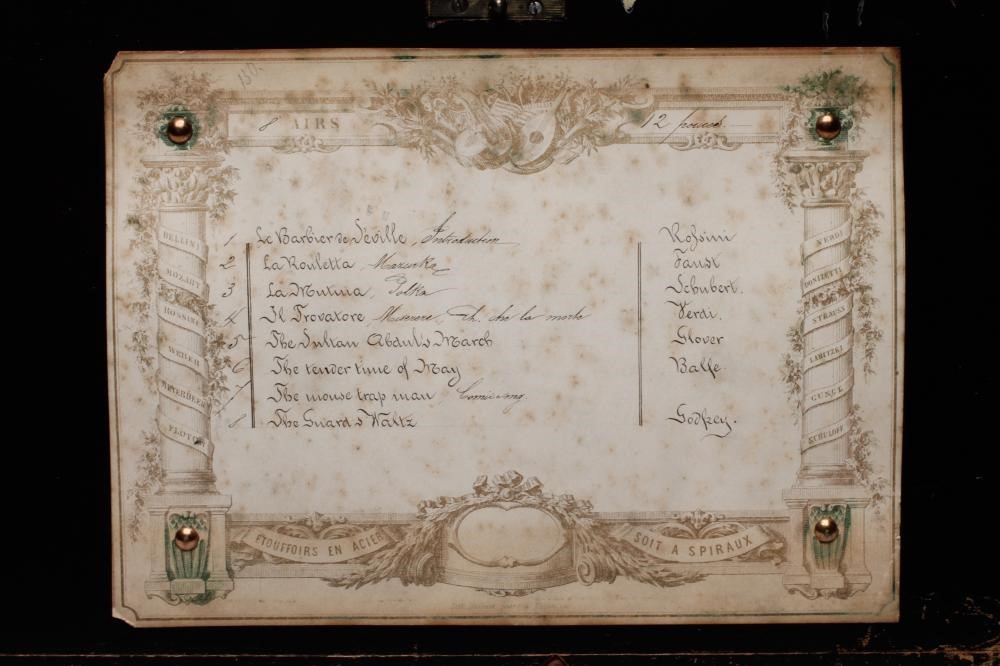 130.
8 AIRS
12 pouces.
1 Le Barbier de Séville, Introduction Rossini
2 La Rouletta, Mazurka Faust
3 La Mutina, Polka Schubert.
4 Il Trovatore Miserere, Ah. che la morte Verdi.
5 The Sultan Abdul's March Glover
6 The tender time of May Balfe
7 The mouse trap man, Comic song.
8 The Guards Waltz Godfrey.
BELLINI
MOZART
ROSSINI
WEBER
MEYERBEER
FLOTOW
VERDI
DONIZETTI
STRAUSS
LABITZKI
GUNGL
SCHULOFF
ETOUFFOIRS EN ACIER
SOIT A SPIRAUX